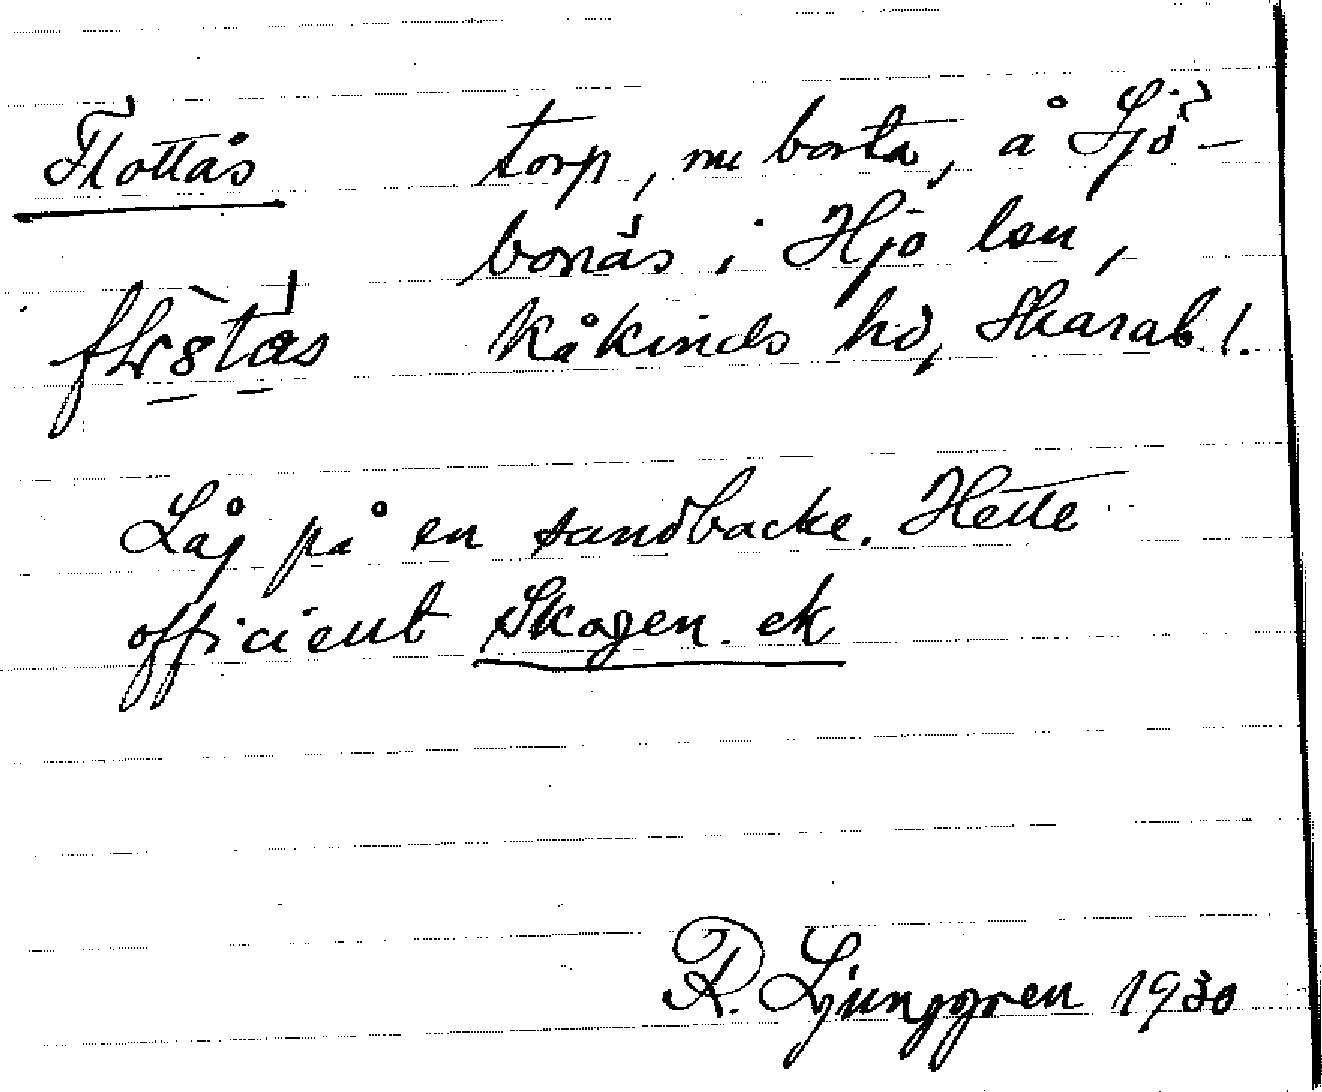 Flottås torp, nu borta, å Sjö-
bonäs i Hjo lsn,
Kåkinds hd, Skarab l.
Låg på en sandbacke. Hette
officient Skogen. ek
R. Ljunggren 1930